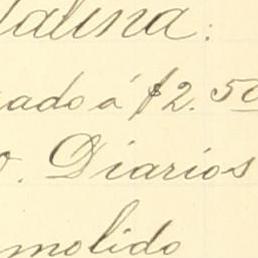 talina:
cado á $2.50
o. Diarios
molido